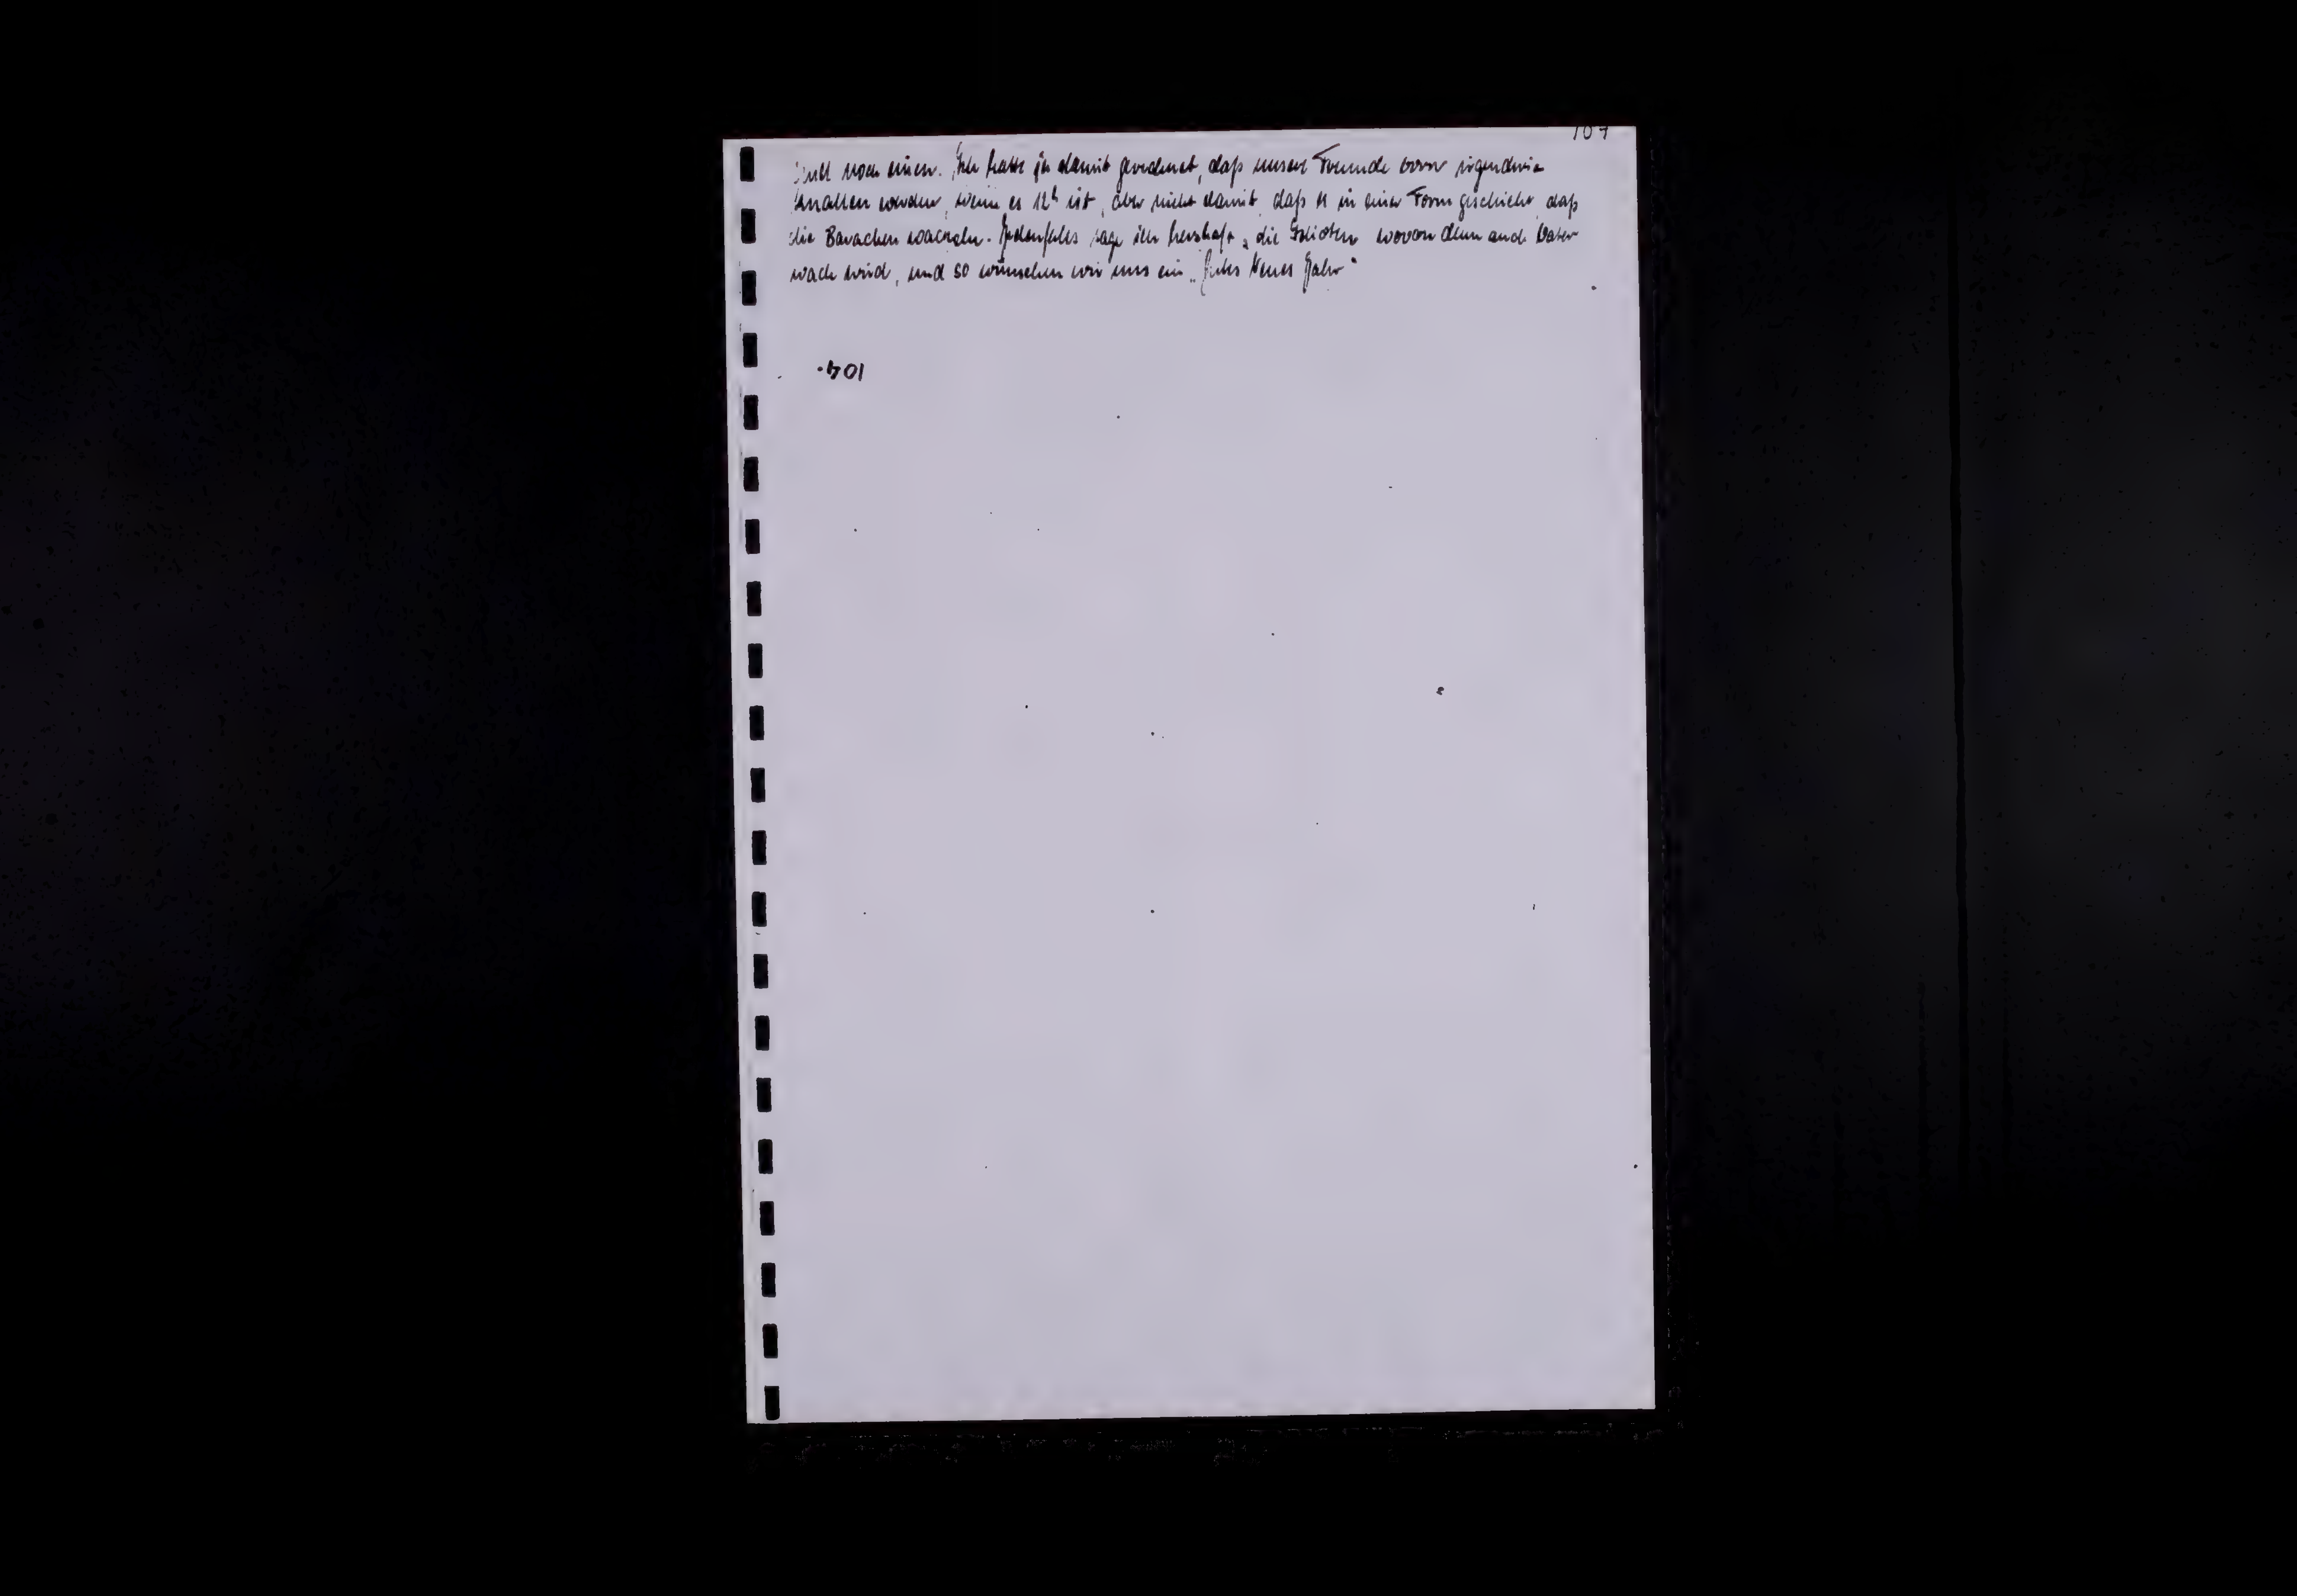 107
und noch einen. Ich hatte ja damit gerechnet, daß unsere Freunde vorn irgendwie
knallen würden, wenn es 12h ist, aber nicht damit, daß es in einer Form geschieht, daß
die Baracken wackeln. Jedenfalls sage ich herzhaft „die Idioten wovon denn auch Vater
wach wird, und so wünschen wir uns ein „Gutes Neues Jahr"
104.